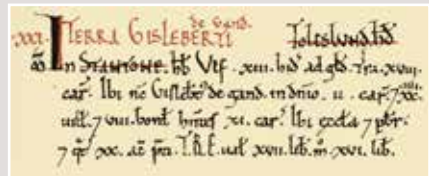 de Gand.
.xxi. TERRA GISLEBERTI Toleslund hd
ⓜ In STANTONE. hb Vlf. .xiii. hid ad gld. Tra. xviii.
car. Ibi nc Gislebt de gand. in dnio .ii. car. 7 xx.
uill. 7 viii. bord. hntes xi. car. Ibi eccla 7 pbr.
7 ac pti. T.R.E. ual xvii. lib. m. xvi. lib.